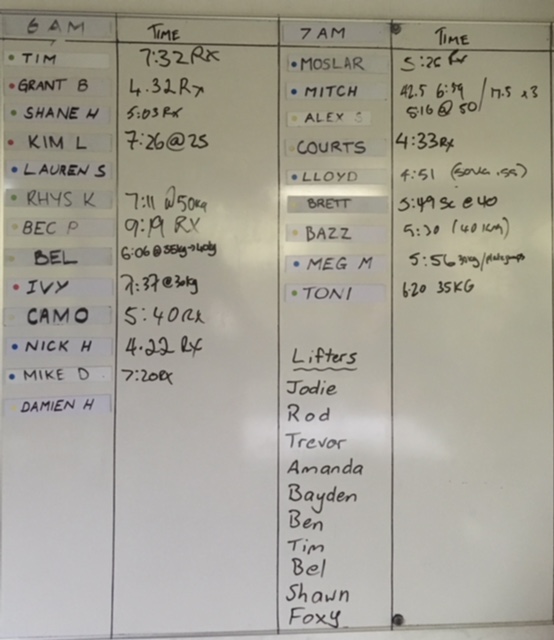 6 AM TIME
TIM 7:32 RX
GRANT B 4.32 Rx
SHANE H 5:03 Rx
KIM L 7:26 @ 25
LAUREN S
RHYS K 7:11 @ 50kg
BEC P 9:19 RX
BEL 6:06 @ 35kg→40kg
IVY 7:37 @ 30kg
CAMO 5:40 Rx
NICK H 4.22 RX
MIKE D 7:20 RX
DAMIEN H
7 AM TIME
MOSLAR 5:26 Rx
MITCH 42.5 6:39 / 17.5 x3
ALEX S 5:16 @ 50
COURTS 4:33 Rx
LLOYD 4:51
BRETT 5:49 Sc @ 40
BAZZ 5:30
MEG M 5:56
TONI 6:20 35KG
Lifters
Jodie
Rod
Trevor
Amanda
Bayden
Ben
Tim
Bel
Shawn
Foxy